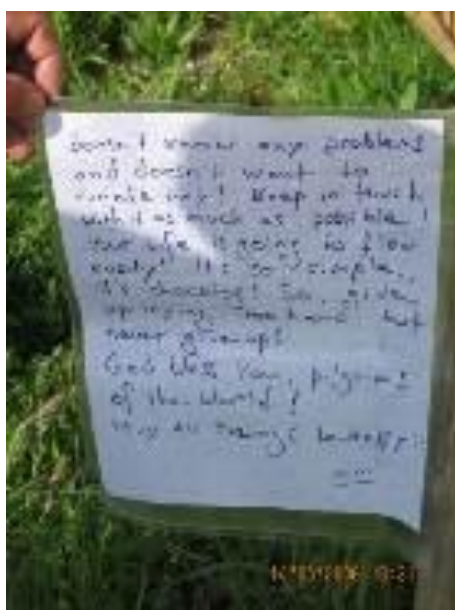 doesn't know any problems
and doesn't want to
any! Keep in touch
with it as much as possible!
Your life is going to flow
easily! It's so simple,
it's shocking! So, give
up trying "too hard" but
never give up!
God bless you, pilgrims
of the world!
May all beings be happy!